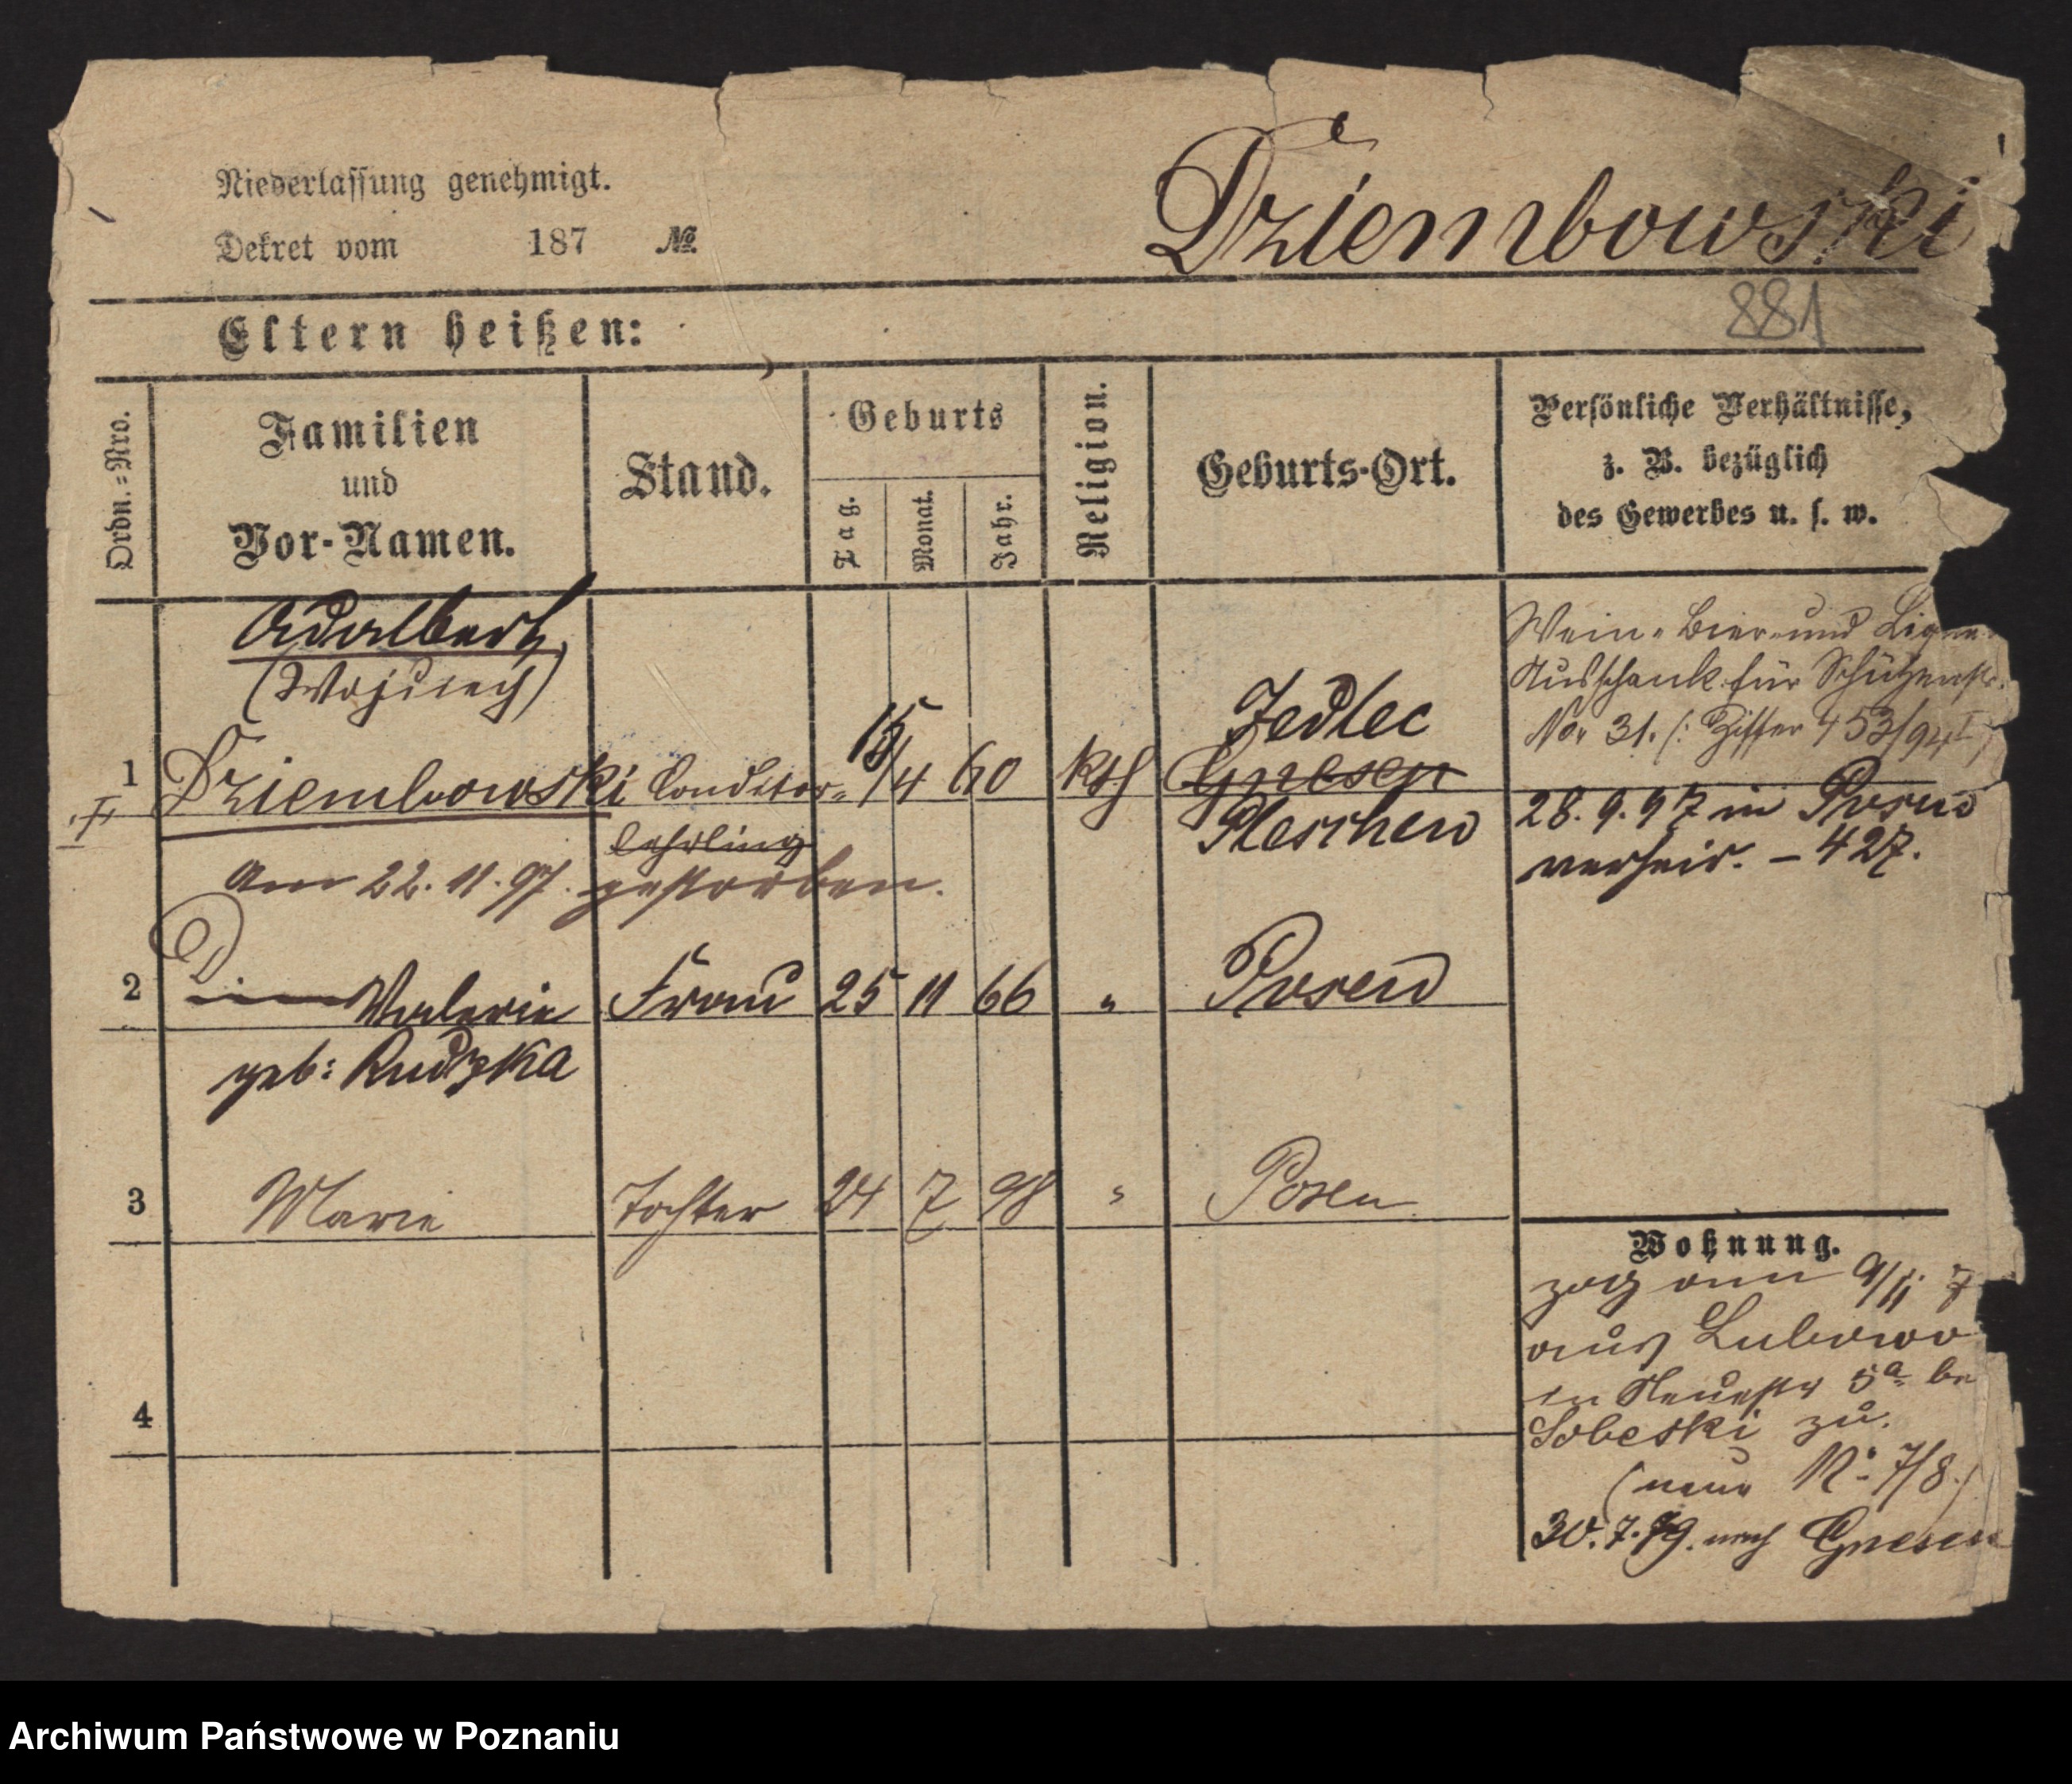 Niederlassung genehmigt.
Dekret vom 187 №
Dziembowski
881
Eltern heißen:
Ordn.-Nro.
Familien
und
Vor-Namen.
Stand.
Geburts
Tag.
Monat.
Jahr.
Religion.
Geburts-Ort.
Persönliche Verhältnisse,
z. B. bezüglich
des Gewerbes u. s. w.
Adalbert
(Wojciech)
1 Dziembowski Conditor- 4 60 kth Gnesen
lehrling
Jedlec
Pleschen
Am 22.11.97. gestorben.
Wein- Bier- und
Ausschank für Schützenstr.
No. 31. (: Ziffer 453/94 I
28.9.97 in Posen
verheir. – 427.
2 Valerie Frau 25 11 66 " Posen
geb: Rudzka
3 Marie Tochter 24 7 98 " Posen
4
Wohnung.
zog am 9/11 7
aus Lubowo
in Neuestr 5a be
Sobeski zu.
(neue No 7/8.)
30.7.79. nach Gnesen
Archiwum Państwowe w Poznaniu